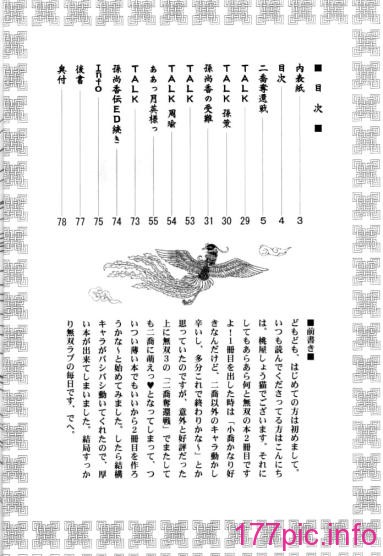 ■ 目 次 ■
内表紙 3
目次 4
二喬奪還戦 5
TALK 29
TALK 孫策 30
孫尚香の受難 31
TALK 53
TALK 周瑜 54
ああっ月英様っ 55
TALK 73
孫尚香伝ED続き 74
Info 75
後書 77
奥付 78
■前書き■
どもども、はじめての方は初めまして、
いつも読んでくださってる方はこんにち
は、桃屋しょう猫でございます。それに
してもあらあら何と無双の本2冊目です
よ!1冊目を出した時は「小喬かなり好
きなんだけど、二喬以外のキャラ動かし
辛いし、多分これで終わりかな~」とか
思っていたのですが、意外と好評だった
上に無双3の「二喬奪還戦」でまたして
も二喬に萌えっ♥となってしまって、つ
いつい薄い本でもいいから2冊目を作ろ
うかな~と始めてみました。したら結構
キャラがバシバシ動いてくれたので、厚
い本が出来てしまいました。結局すっか
り無双ラブの毎日です。でへ。
177pic.info